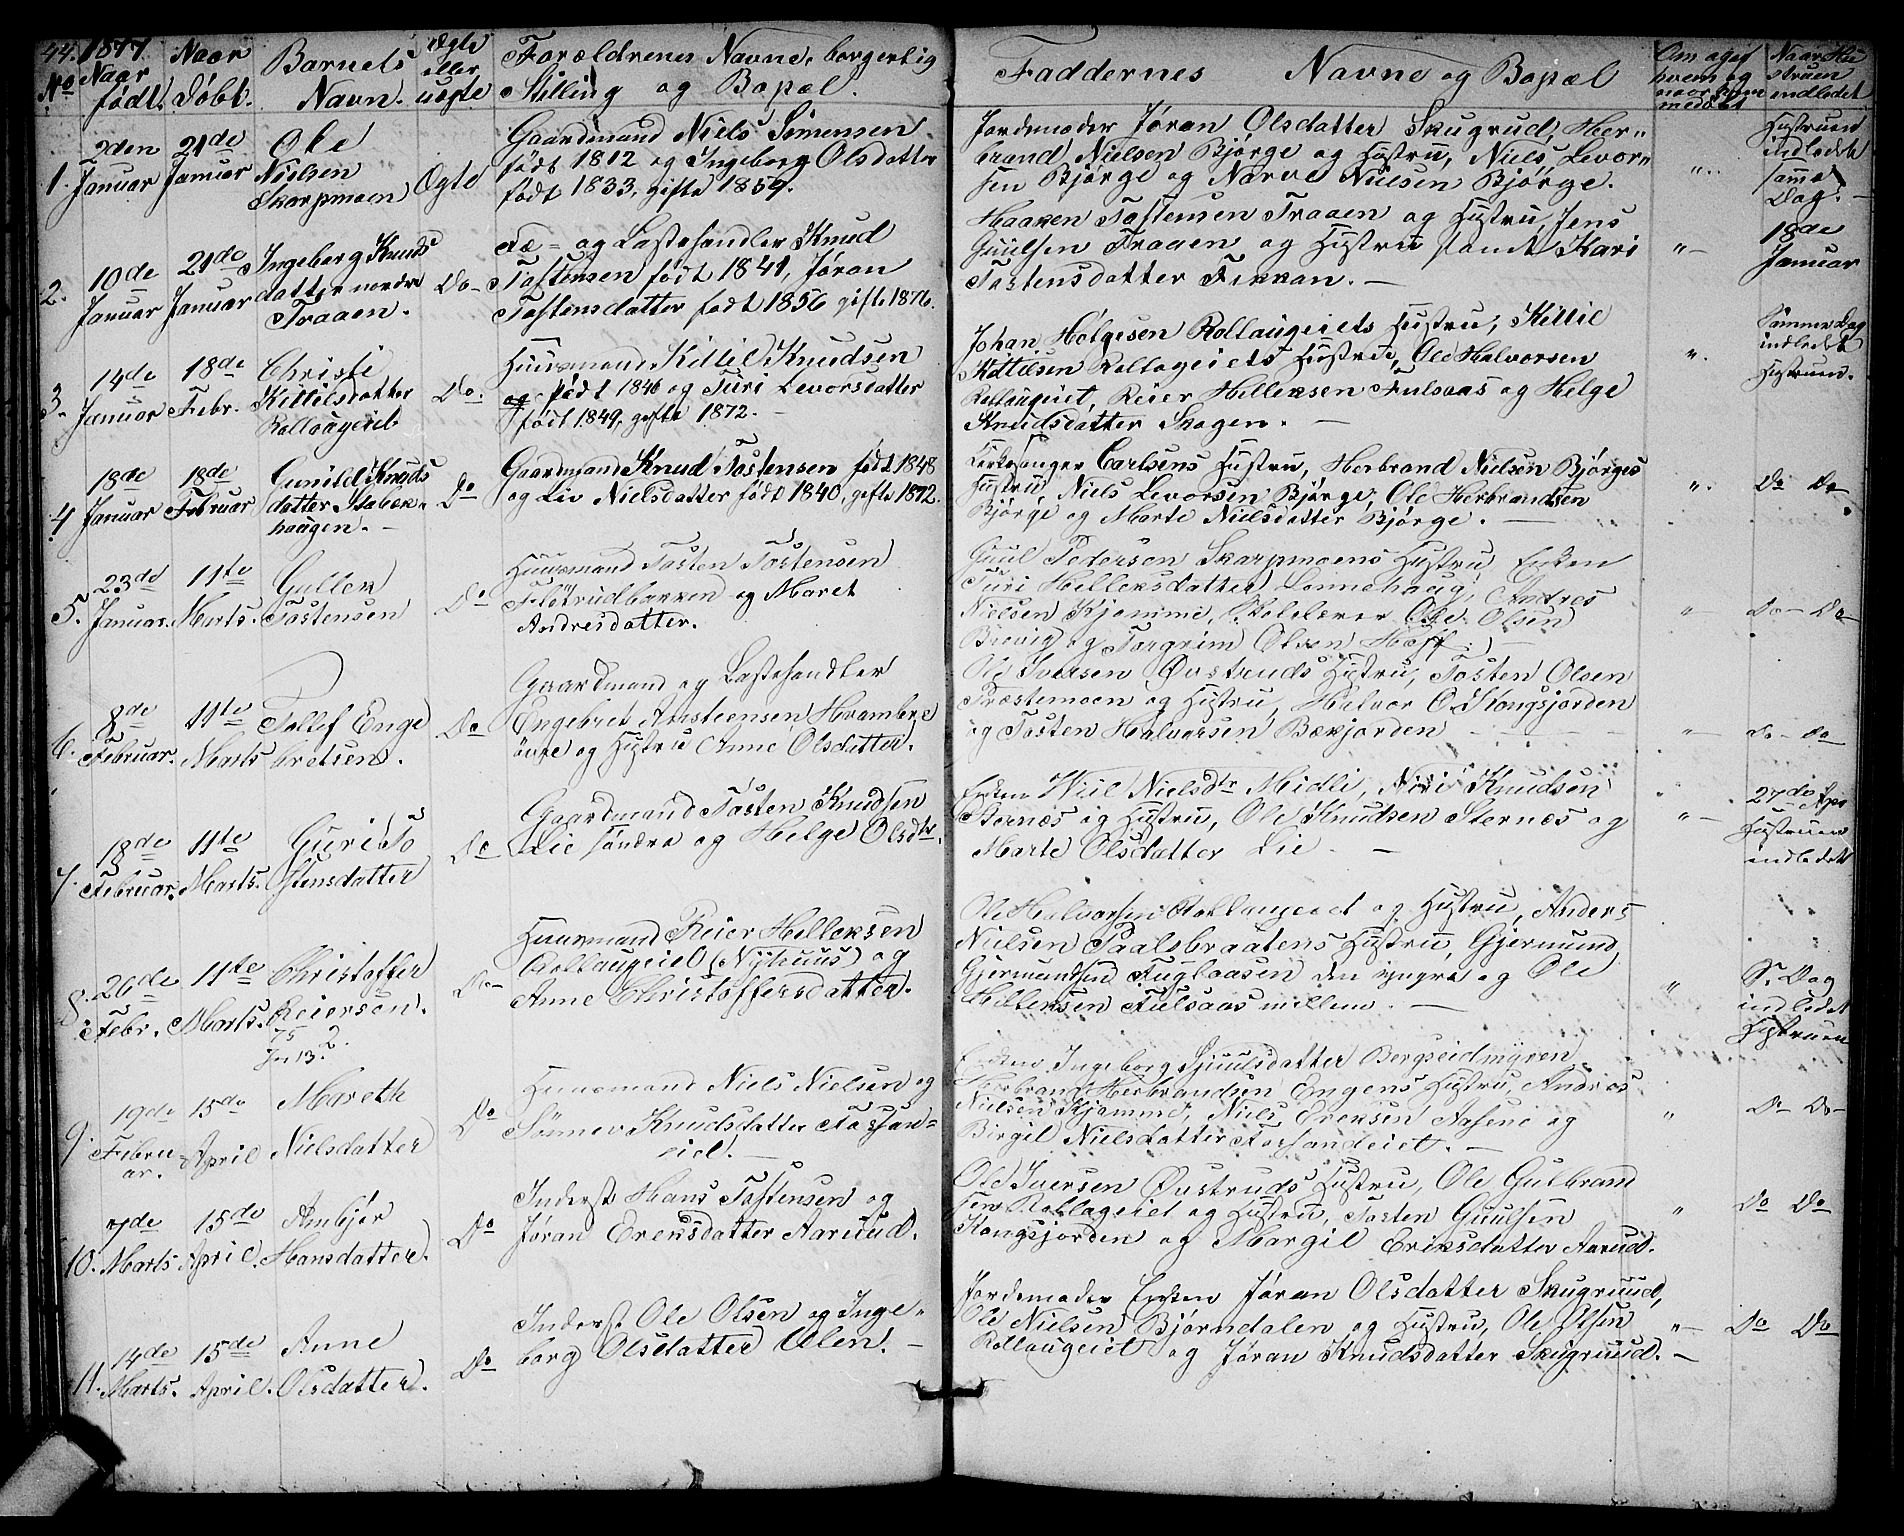 44. 1877.
No Naar født. Naar Døbt. Barnets Navn. ægte eller uægte Forældrenes Navne, borgerlig Stilling og Bopæl. Faddernes Navne og Bopæl Om og af hvem og naar hjemmedøbt Naar Hustruen indledet
1. 2den Januar 21de Januar Ole Nielsen Skarpmoen Ægte
Gaardmand Niels Simensen
født 1812 og Ingeborg Olsdatter
født 1833, gifte 1859.
Jordemoder Jøran Olsdatter Skugrud, Her-
brand Nielsen Bjørge og Hustru, Niels Levor-
sen Bjørge og Narve Nielsen Bjørge.
" Hustruen indledet samme Dag. —
2. 10de Januar 21de Januar Ingeborg Knudsdatter nordre Traaen. Do
Fæ- og Lastehandler Knud
Tostensen født 1841, Jøran
Tostensdatter født 1856 gifte 1876.
Haaken Tostensen Traaen og Hustru Jens
Guulsen Traaen og Hustru samt Kari
Tostensdatter Fekkan. —
" — 18de Januar
3. 14de Januar 18de Febr. Christi Kittilsdatter Rollaugeieb Do.
Huusmand Kittil Knudsen
og født 1846 og Turi Levorsdatter
født 1849, gifte 1872. —
Johan Helgesen Rollaugeiets Hustru, Kittil
Kittilsen Rollageiets Hustru, Ole Halvorsen
Rollaugeiet, Reier Helleksen Fulsaas og Helge
Knudsdatter Skogen. —
" Samme Dag indledet Hustruen.
4 18de Januar 18de Februar Gunild Knudsdatter Stabækhaugen. — Do
Gaardmand Knud Tostensen født 1848
og Liv Nielsdatter født 1840, gifte 1872.
Kirkesanger Carlsens Hustru, Herbrand Nielsen Bjørges
Hustru, Niels Levorsen Bjørge, Ole Herbrandsen
Bjørge og Marte Nielsdatter Bjørge. —
" Do Do
5. 23de Januar. 11te Marts. Gullek Tostensen Do
Huusmand Tosten Tostensen
Fløtrudbakken og Maret
Andresdatter.
Guul Pedersen Skarpmoens Hustru, Enken
Turi Helleksdatter Lonnehaug, Andres
Nielsen Kjemme, Skolelærer Ole Olsen
Brevig og Torgrim Olsen Hoff. —
" Do — Do
6. 8de Februar. 11te Marts Tollef Engebretsen. Do
Gaardmand og Lastehandler
Engebret Amsteensen Hrambre
øvre og Hustru Anne Olsdatter.
Ole Iversen Øvstruds Hustru, Tosten Olsen
Præstemoen og Hustru, Halvor O. Kongsjorden
og Tosten Halvorsen Bækjorden
" — do — do
7. 18de Februar. 11te Marts. Guri Tostensdatter Do
Gaardmand Tosten Knudsen
Lie søndre og Helge Olsdtr.
Enken Wiil Nielsdtr Midli, Niri Knudsen
Sternæs og Hustru, Ole Knudsen Sternæs og
Marte Olsdatter Lie. —
" — 27de Apr Hustruen indledet
8. 26de Febr. 11te Marts. Christoffer Reierson. Do
75
Jn 13. 2.
Huusmand Reier Helleksen
Rollaugeiet (Nyhuus) og
Anne Christoffersdatter.
Ole Halvorsen Rollaugeiet og Hustru, Anders
Nielsen Paalsbraatens Hustru, Gjermund
Gjermundsen Fuglaasen den yngre og Ole
Helleksen Fulsaas mellem. —
" S. Dag indledet Hustruen
9. 19de Februar. 15de April Mareth Nielsdatter Do
Huusmand Niels Nielsen og
Sønnev Knudsdatter Fossan=
eiet. —
Enken Ingeborg Sjuulsdatter Bergseidmyren
Herbrand Herbrandsen Engens Hustru, Andres
Nielsen Kjemme, Niels Ereksen Aasene og
Birgit Nielsdatter Fossaneiet. —
" Do Do —
10. 7de Marts 15de April. Ambjør Hansdatter. Do
Inderst Hans Tostensen og
Jøran Ereksdatter Aaruud.
Ole Iversen Øvstruds Hustru, Ole Gulbrand
sen Rollageiet og Hustru, Tosten Guulsen
Kongsjorden og Margit Eriksdatter Aarud.
" Do Do
11. 14de Marts. 15de April. Anne Olsdatter. Do
Inderst Ole Olsen og Inge-
borg Olsdatter Ulen. —
Jordemoder Enken Jøran Olsdatter Skugruud,
Ole Nielsen Bjørndalen og Hustru, Ole Olsen
Rollaugeiet og Jøran Knudsdatter Skugruud. —
" — Do Do